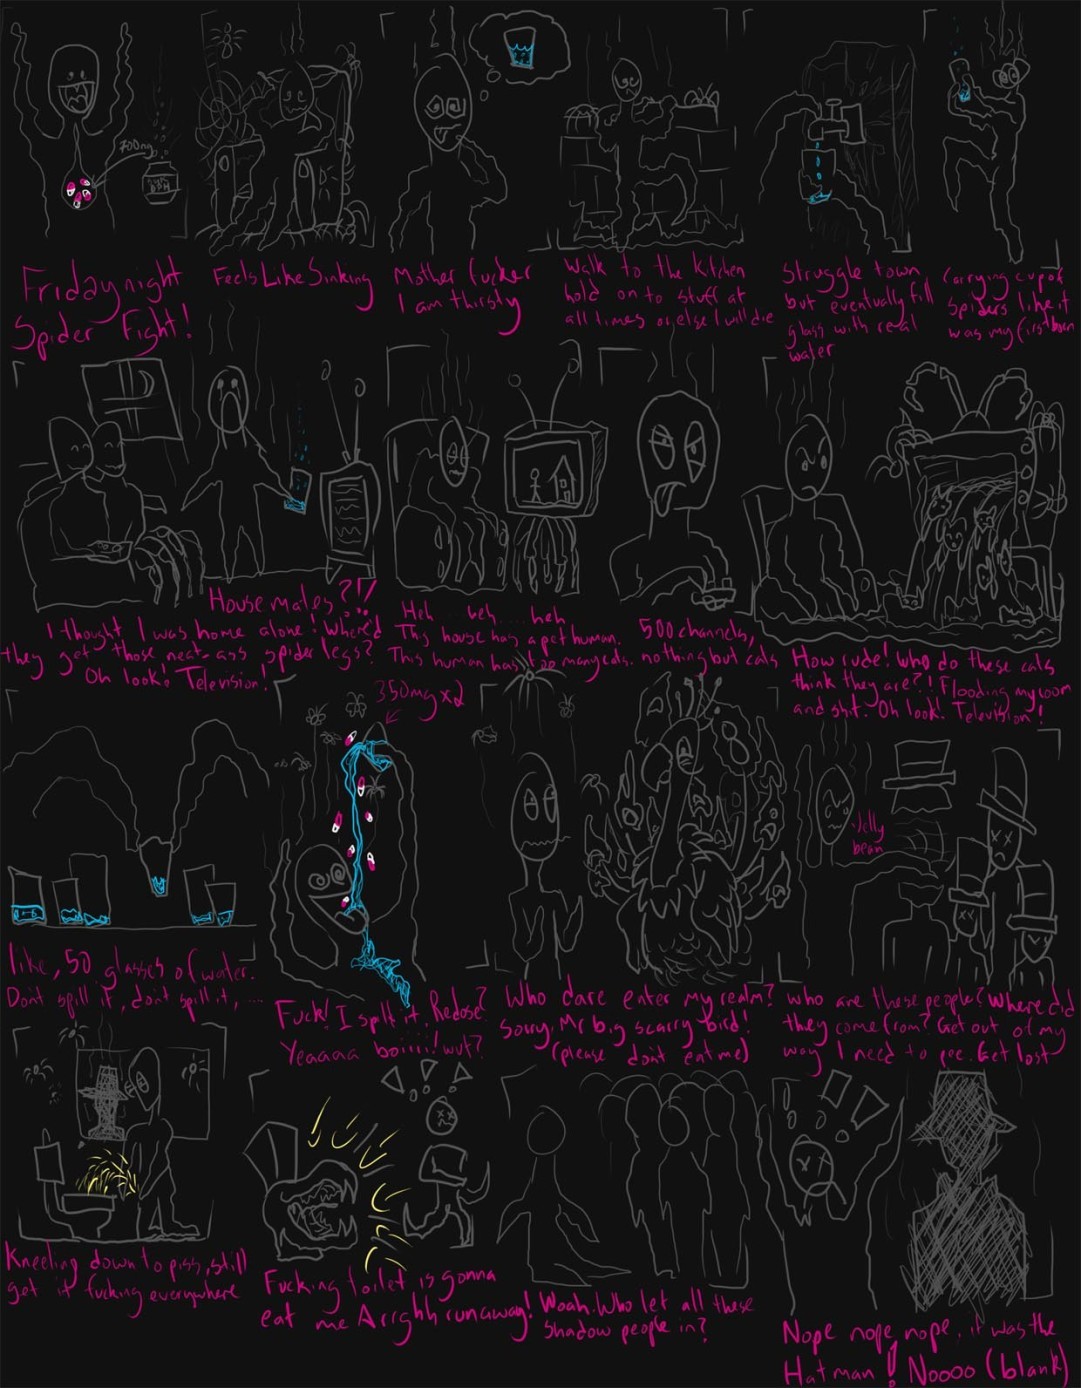 700mg
DPH
Friday night
Spider Fight!
Feels Like Sinking
Mother fucker
I am thirsty
Walk to the kitchen
hold on to stuff at
all times or else I will die
Struggle town,
but eventually fill
glass with real
water
Carrying cup of
spiders like it
was my first born
House mates?!!
I thought I was home alone! Where'd
they get those neat-ass spider legs?
Oh look! Television!
Heh... heh... heh
This house has a pet human.
This human has too many cats.
500 channels,
nothing but cats
How rude! Who do these cats
think they are?! Flooding my room
and shit. Oh look! Television!
like, 50 glasses of water.
Don't spill it, don't spill it, ....
350mg x2
Fuck! I spilt it. Redose?
Yeaaaa boiiii! wut?
Who dare enter my realm?
Sorry, Mr big scarry bird!
(please don't eat me)
Jelly
bean
who are these people? Where did
they come from? Get out of my
way I need to pee. Get lost
Kneeling down to piss, still
get it fucking everywhere
Fucking toilet is gonna
eat me Arrghh runaway!
Woah. Who let all these
shadow people in?
Nope nope nope, it was the
Hatman! Noooo (blank)